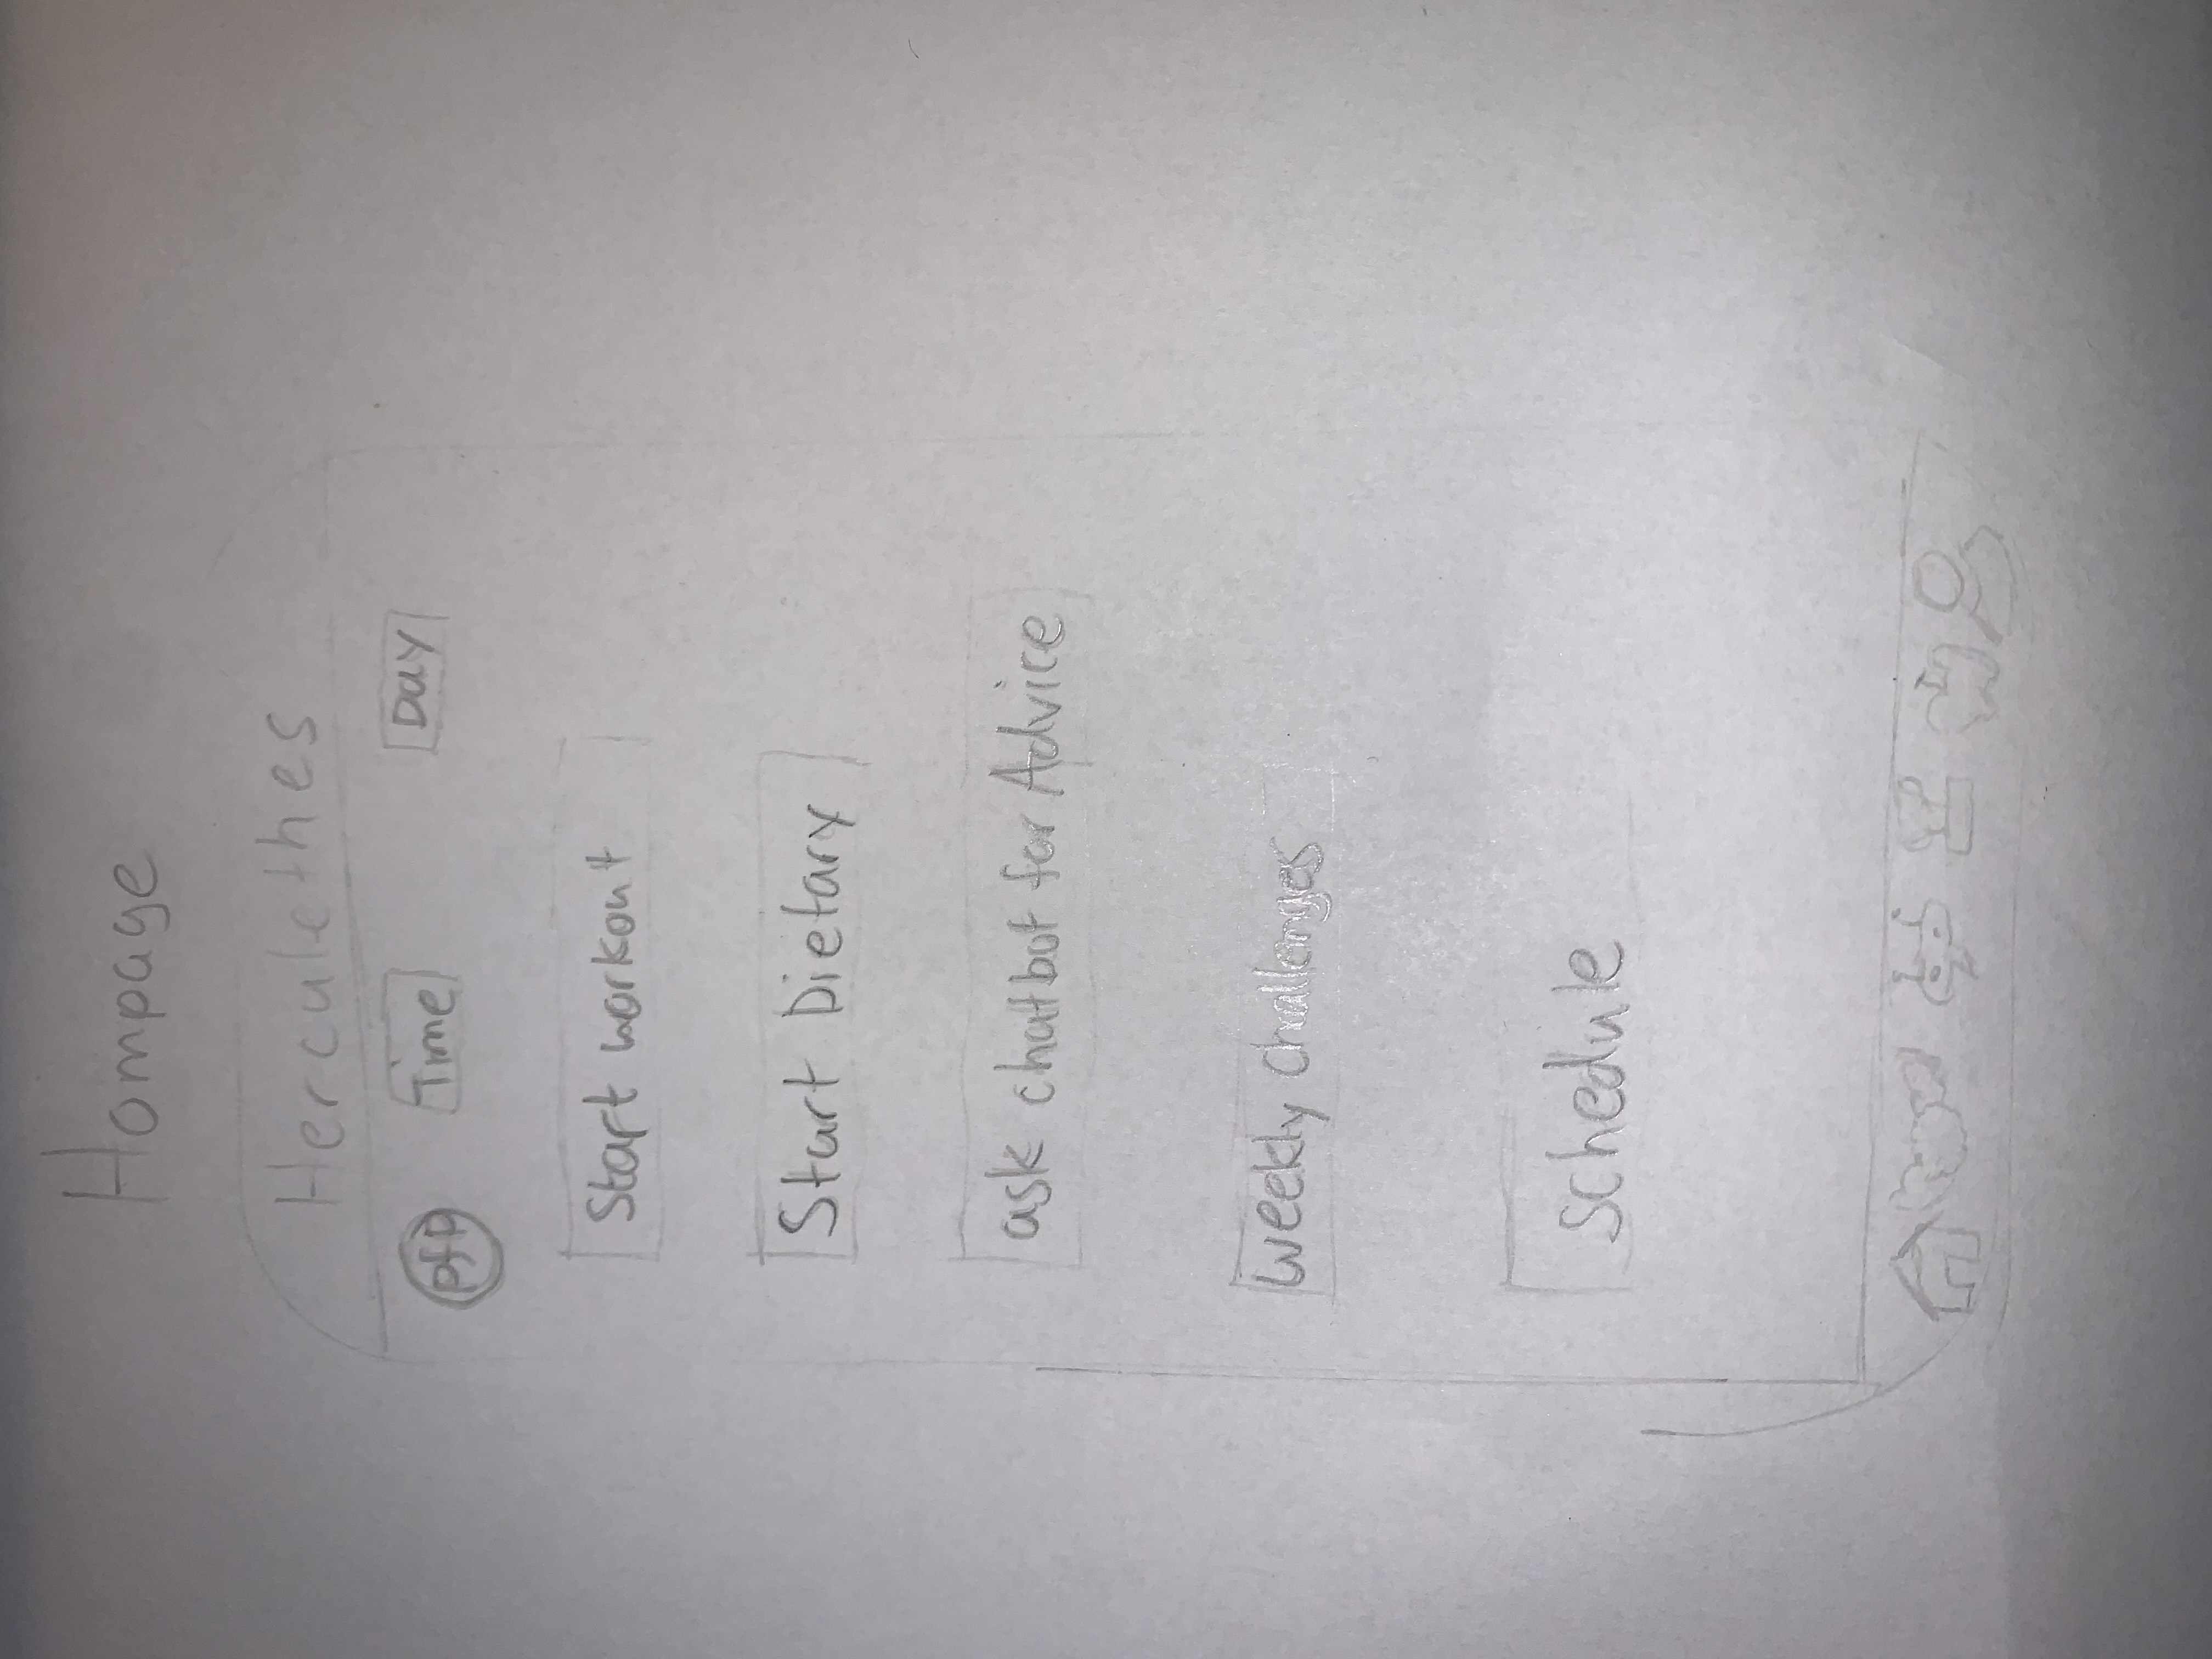 Hompage
Herculethes
pfp Time Day
Start workout
Start Dietary
ask chatbot for Advice
Weekly Challenges
schedule